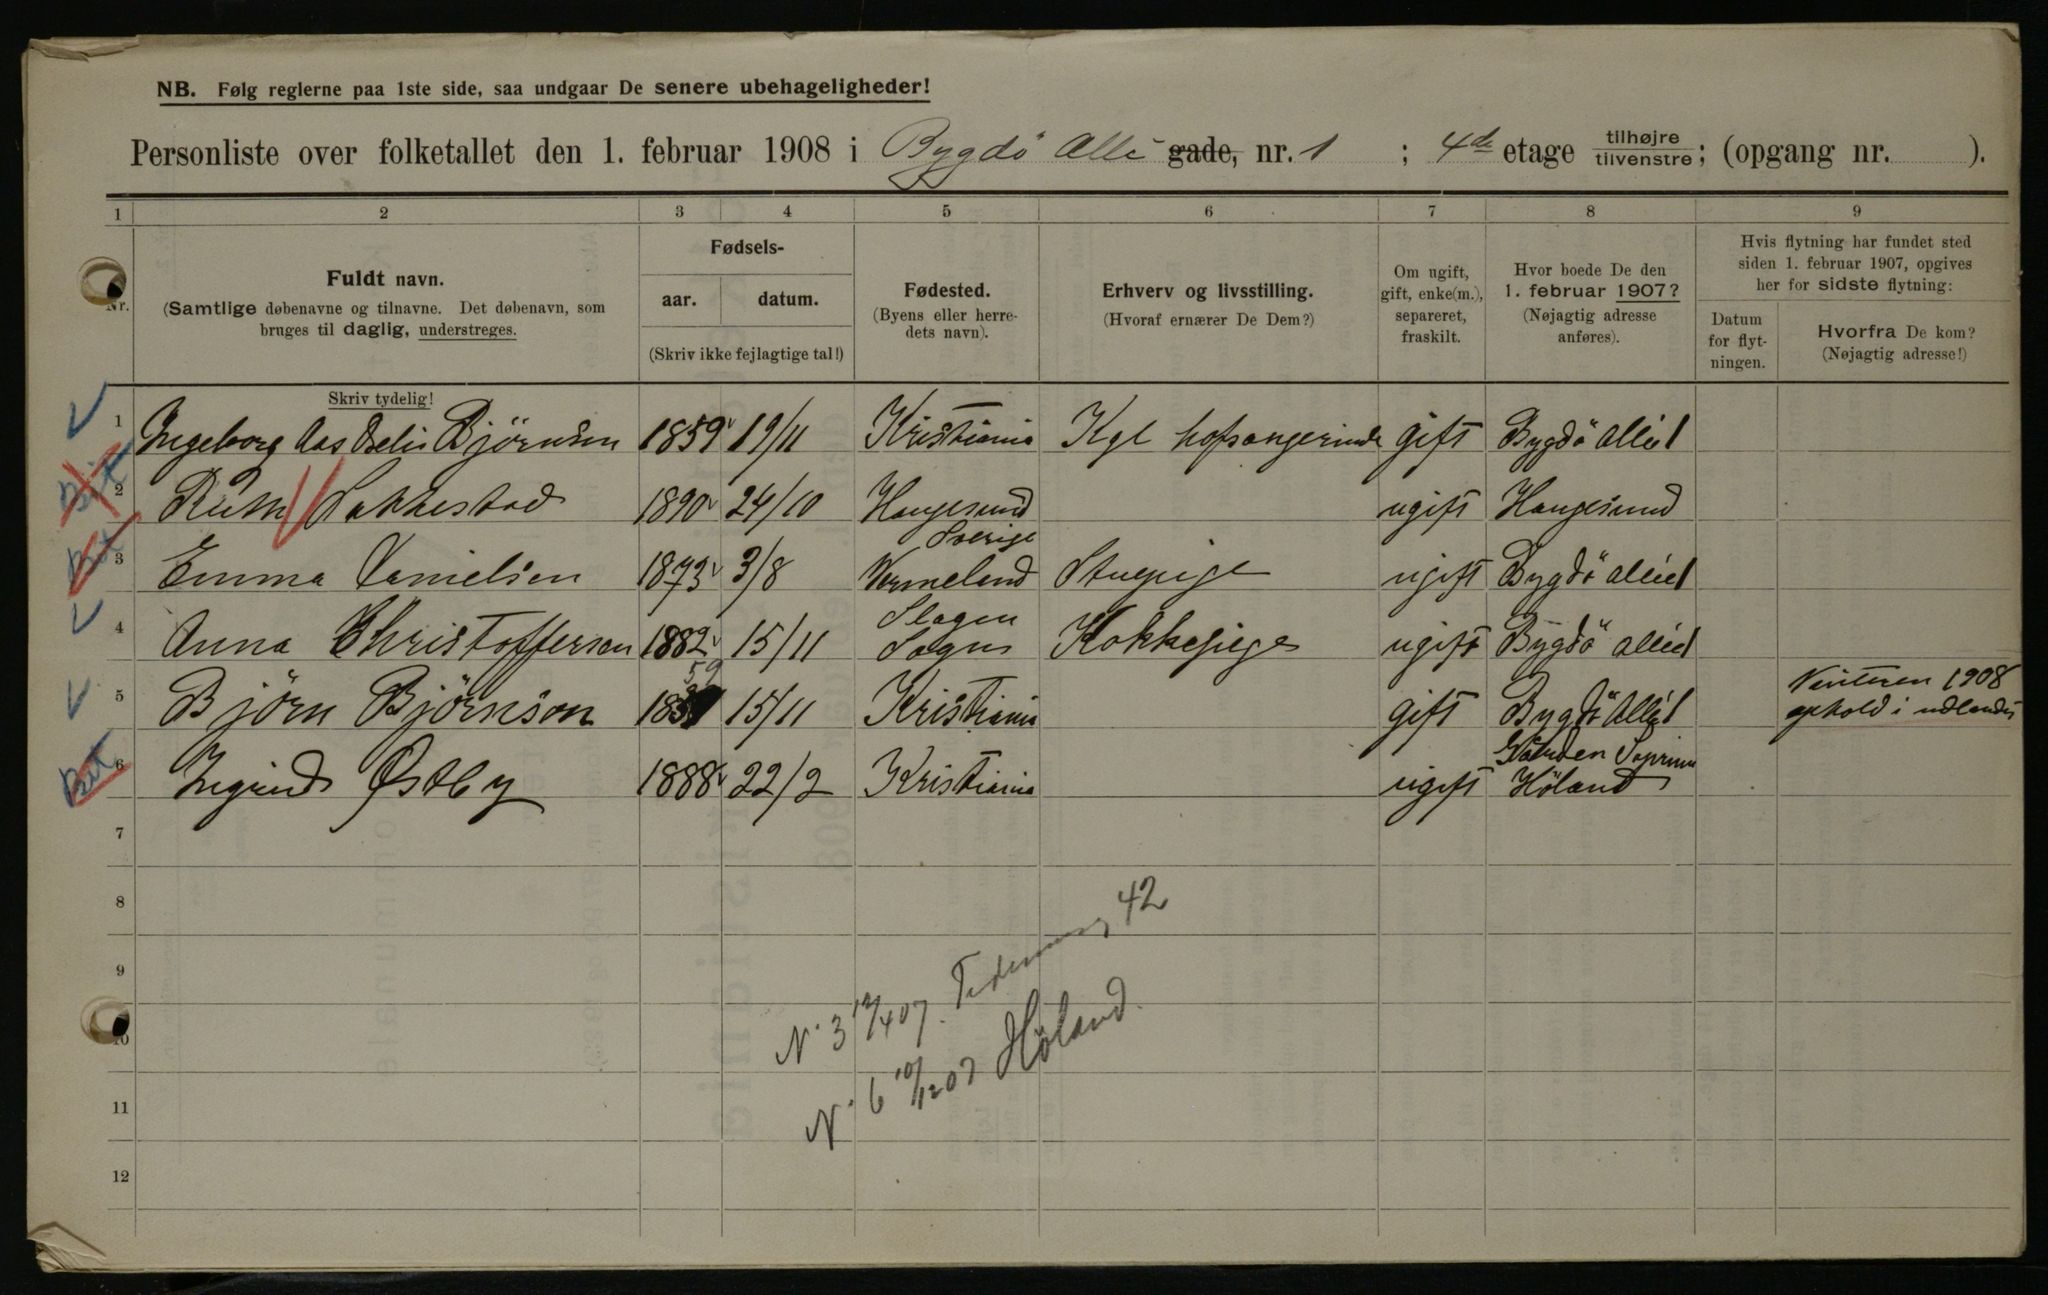 NB. Følg reglerne paa 1ste side, saa undgaar De senere ubehageligheder!
Personliste over folketallet den 1. februar 1908 i Bygdö Allé gade, nr. 1 ; 4de etage tilhøjre tilvenstre; (opgang nr. ).
1 2 3 4 5 6 7 8 9
Nr.
Fuldt navn.
(Samtlige døbenavne og tilnavne. Det døbenavn, som
bruges til daglig, understreges.
Skriv tydelig!
Fødsels-
aar. datum.
(Skriv ikke fejlagtige tal!)
Fødested.
(Byens eller herre-
dets navn).
Erhverv og livsstilling.
(Hvoraf ernærer De Dem?)
Om ugift,
gift, enke(m.),
separeret,
fraskilt.
Hvor boede De den
1. februar 1907?
(Nøjagtig adresse
anføres).
Hvis flytning har fundet sted
siden 1. februar 1907, opgives
her for sidste flytning:
Datum
for flyt-
ningen.
Hvorfra De kom?
(Nøjagtig adresse!)
1 Ingeborg Aas Björnson 1859 19/11 Kristiania Kgl hofsangerinde gift Bygdö allé 1
Bit 2 Ruth 1890 24/10 Haugesund ugift Haugesund
Bit 3 Emma Danielsen 1873 3/8 Sverige Vermeland Stuepige ugift Bygdö allé 1
4 Anna Christoffersen 1882 15/11 Slagen Sogn Kokkepige ugift Bygdö allé 1
5 Björn Björnson 59 15/11 Kristiania gift Bygdö Allé 1 Vinteren 1908
ophold i udlandet
Bit 6 Ingrid Østby 1888 22/2 Kristiania ugift Gaarden
Höland
7
8
9
10
11
12
N. 3 12/4 07. 42
N. 6 10/12 07 Höland.